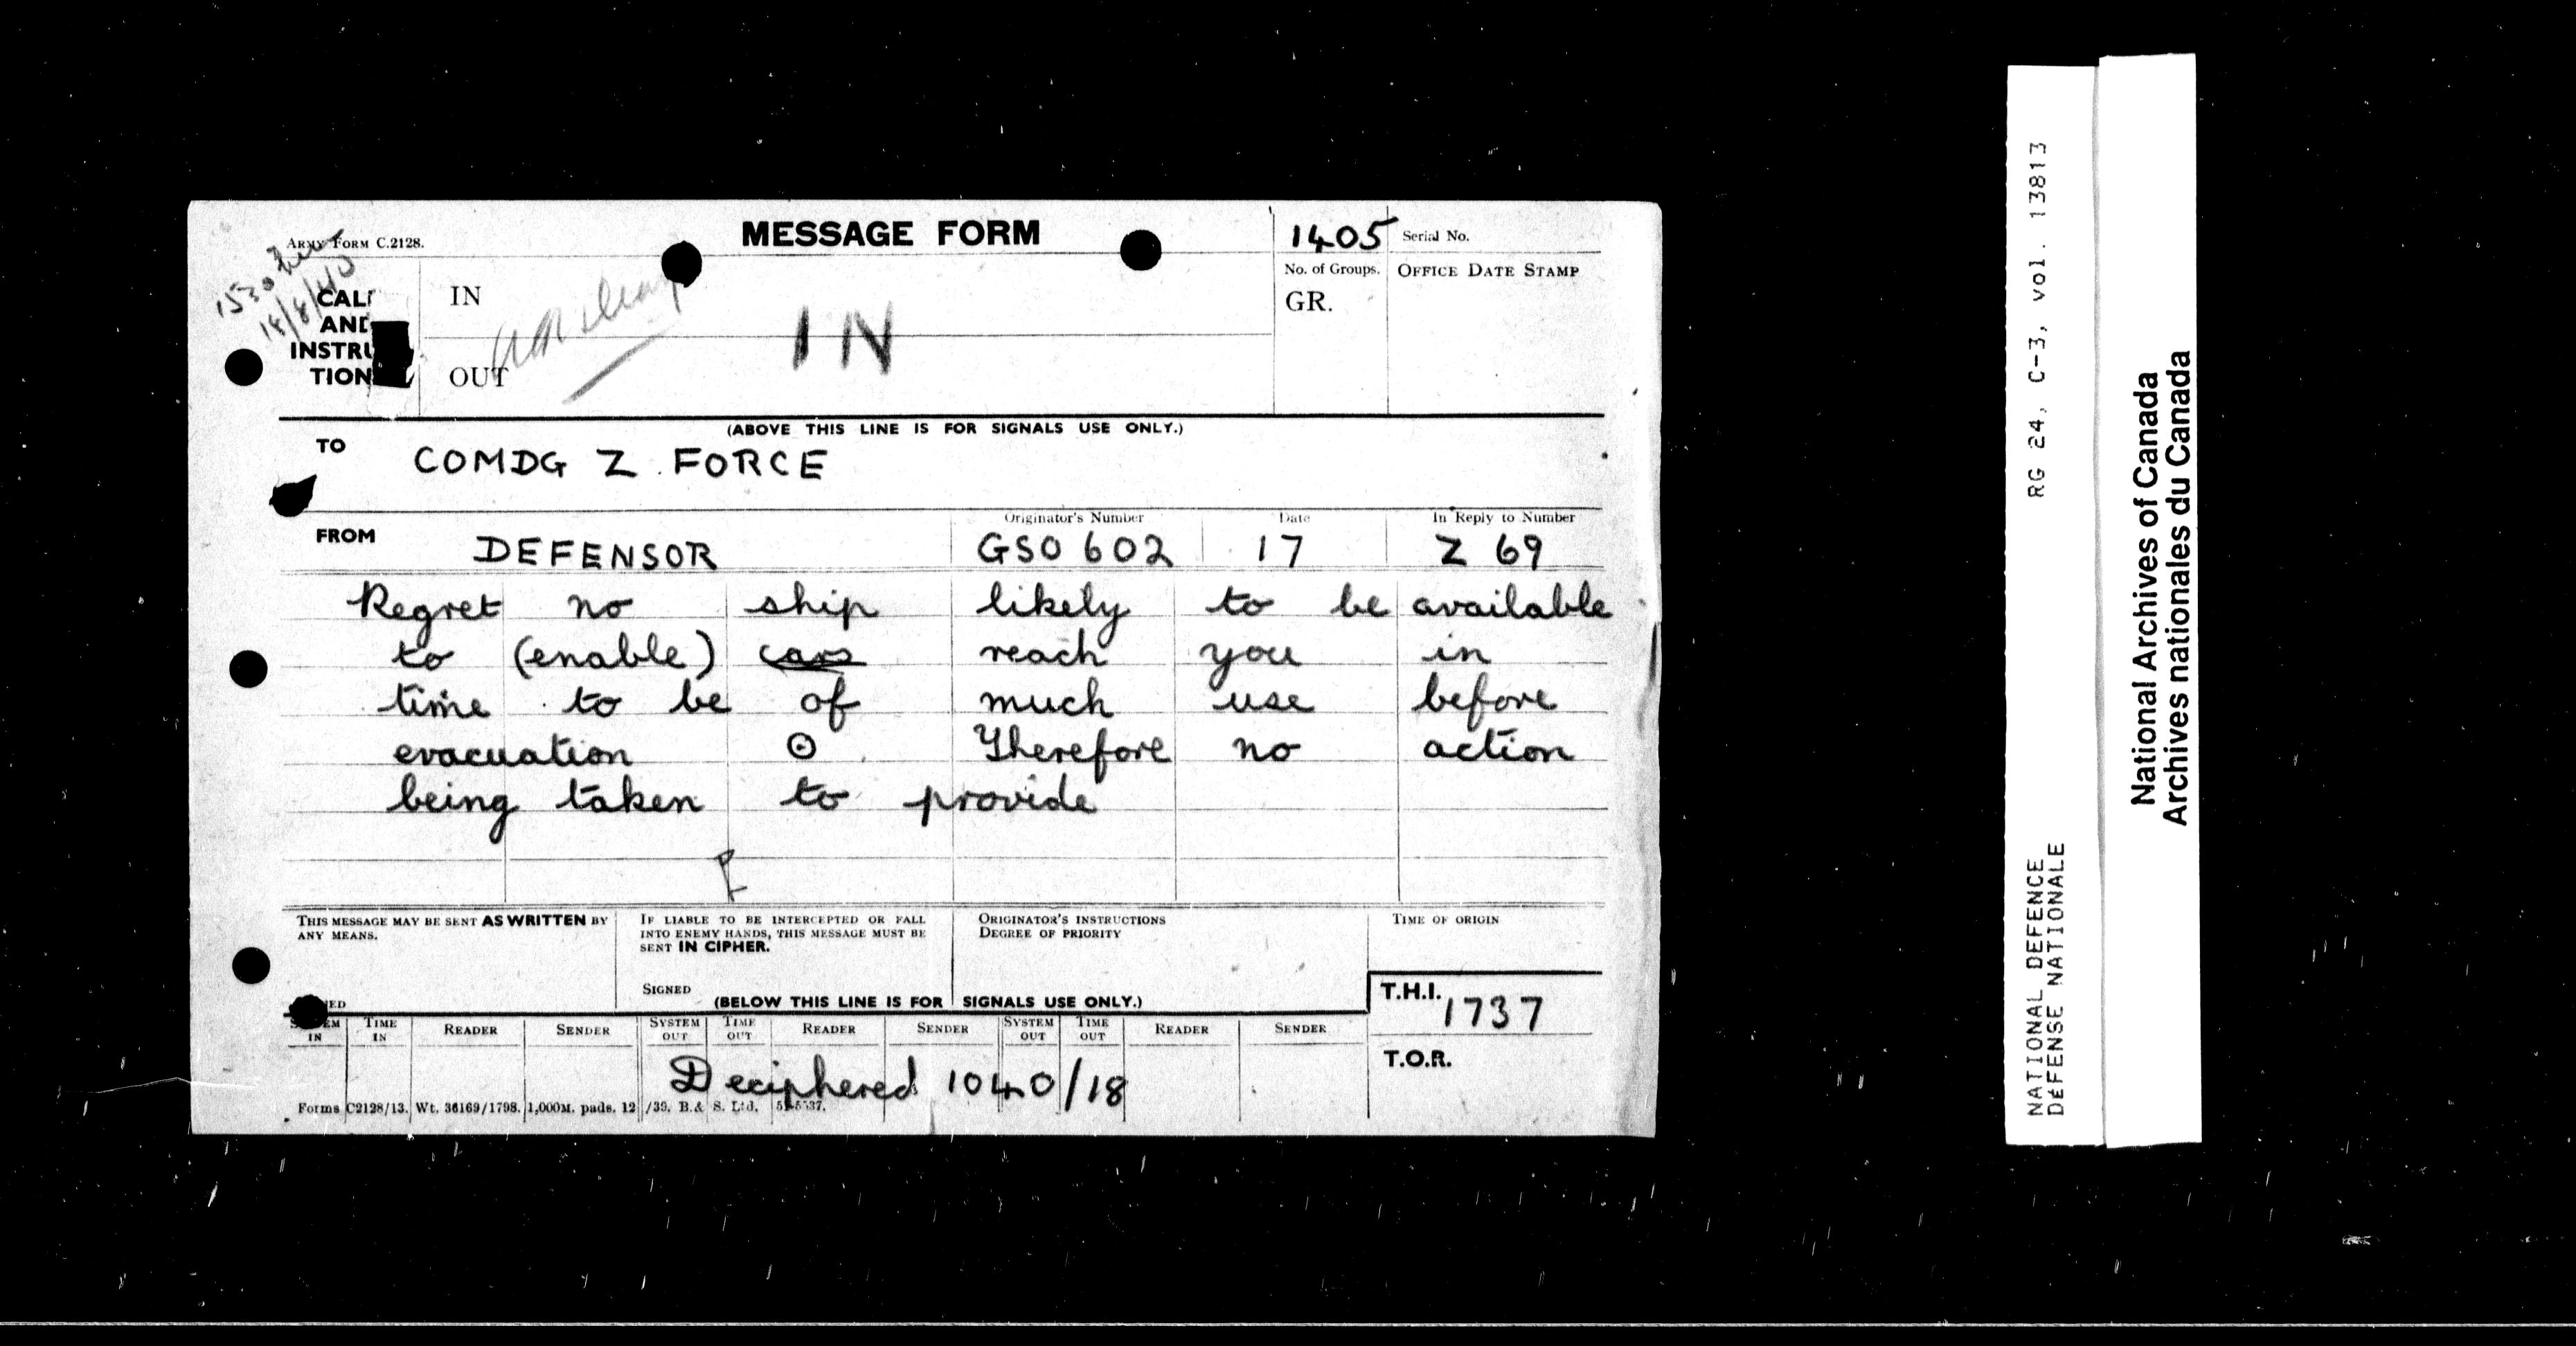 ARMY FORM C.2128.
MESSAGE FORM
1405 Serial No.
1530 hrs
18/8/40
No. of Groups. OFFICE DATE STAMP
GR.
CALL
AND
INSTRU
TION
IN
IN
OUT
(ABOVE THIS LINE IS FOR SIGNALS USE ONLY.)
TO COMDG Z FORCE
Originator's Number Date In Reply to Number
FROM DEFENSOR GSO 602 17 Z 69
Regret no ship likely to be available
to (enable) cars reach you in
time to be of much use before
evacuation ⊙ Therefore no action
being taken to provide
THIS MESSAGE MAY BE SENT AS WRITTEN BY
ANY MEANS.
IF LIABLE TO BE INTERCEPTED OR FALL
INTO ENEMY HANDS, THIS MESSAGE MUST BE
SENT IN CIPHER.
SIGNED
ORIGINATOR'S INSTRUCTIONS
DEGREE OF PRIORITY
TIME OF ORIGIN
(BELOW THIS LINE IS FOR SIGNALS USE ONLY.)
T.H.I. 1737
T.O.R.
SYSTEM IN TIME IN READER SENDER SYSTEM OUT TIME OUT READER SENDER SYSTEM OUT TIME OUT READER SENDER
Deciphered 1040/18
Forms C2128/13. Wt. 36169/1798. 1,000M. pads. 12/39. B.& S. Ltd.
RG 24, C-3, vol. 13813
NATIONAL DEFENCE
DÉFENSE NATIONALE
National Archives of Canada
Archives nationales du Canada